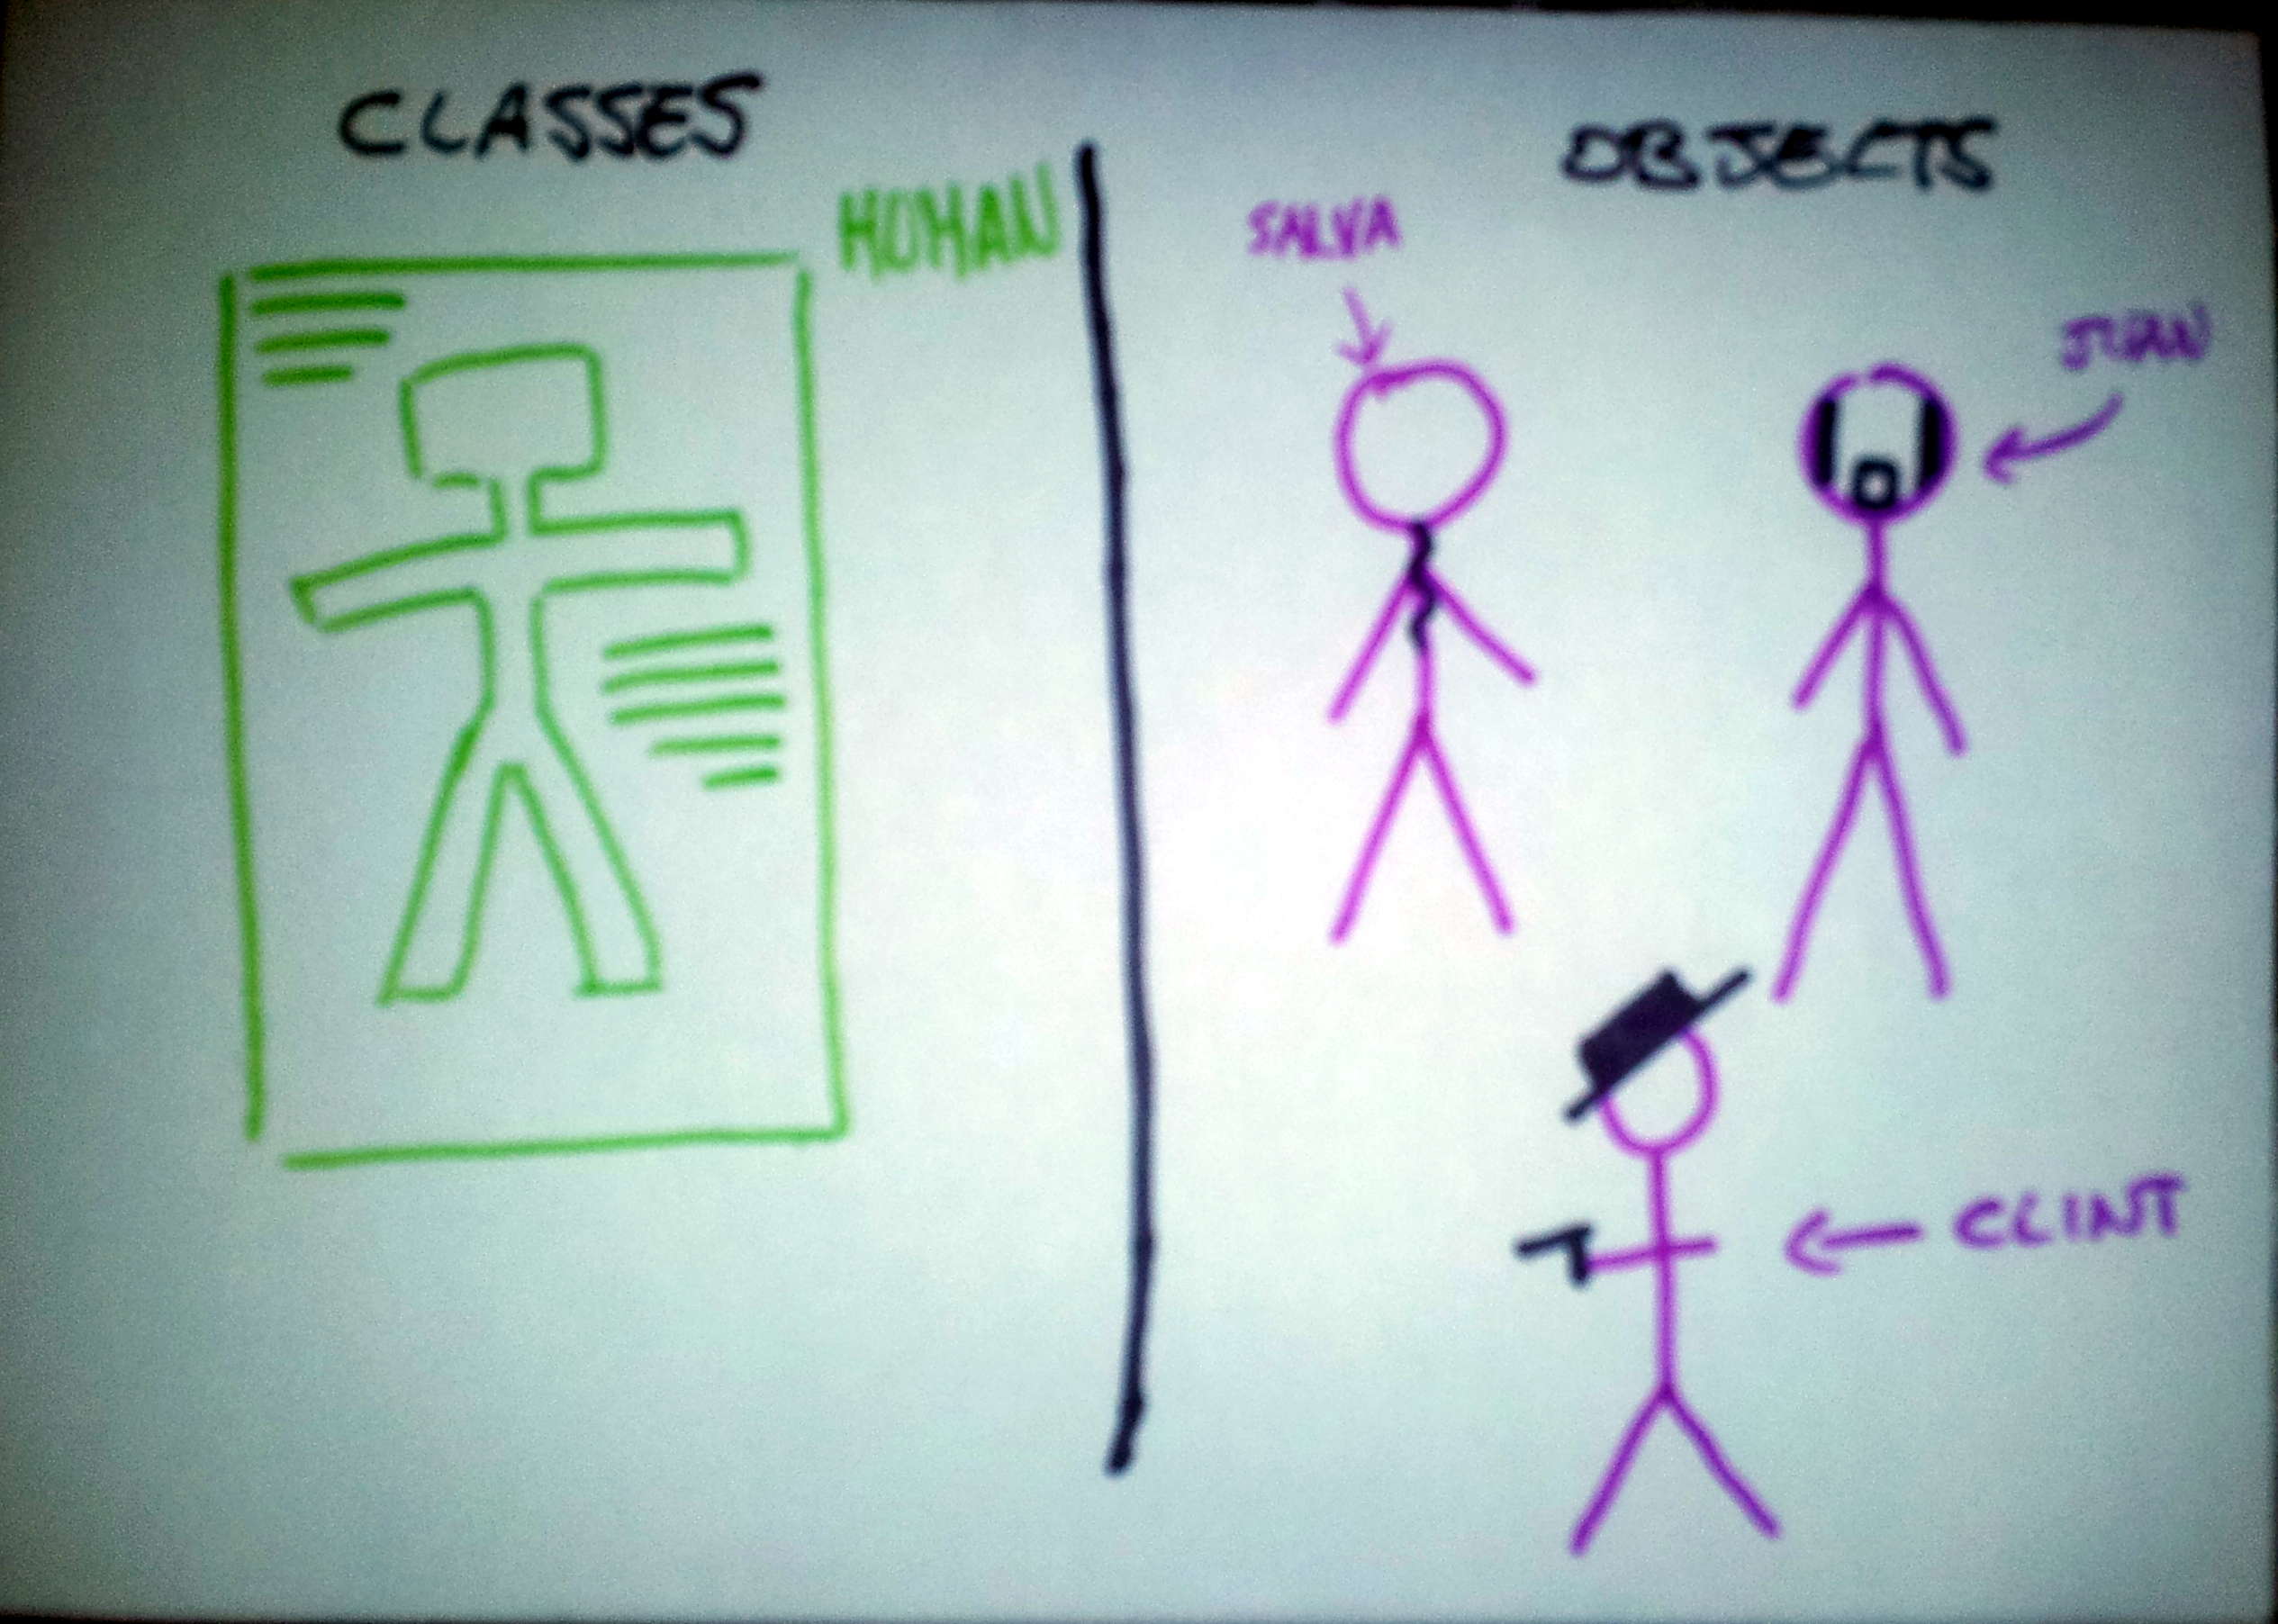 CLASSES
HUMAN
OBJECTS
SALVA
JUAN
CLINT